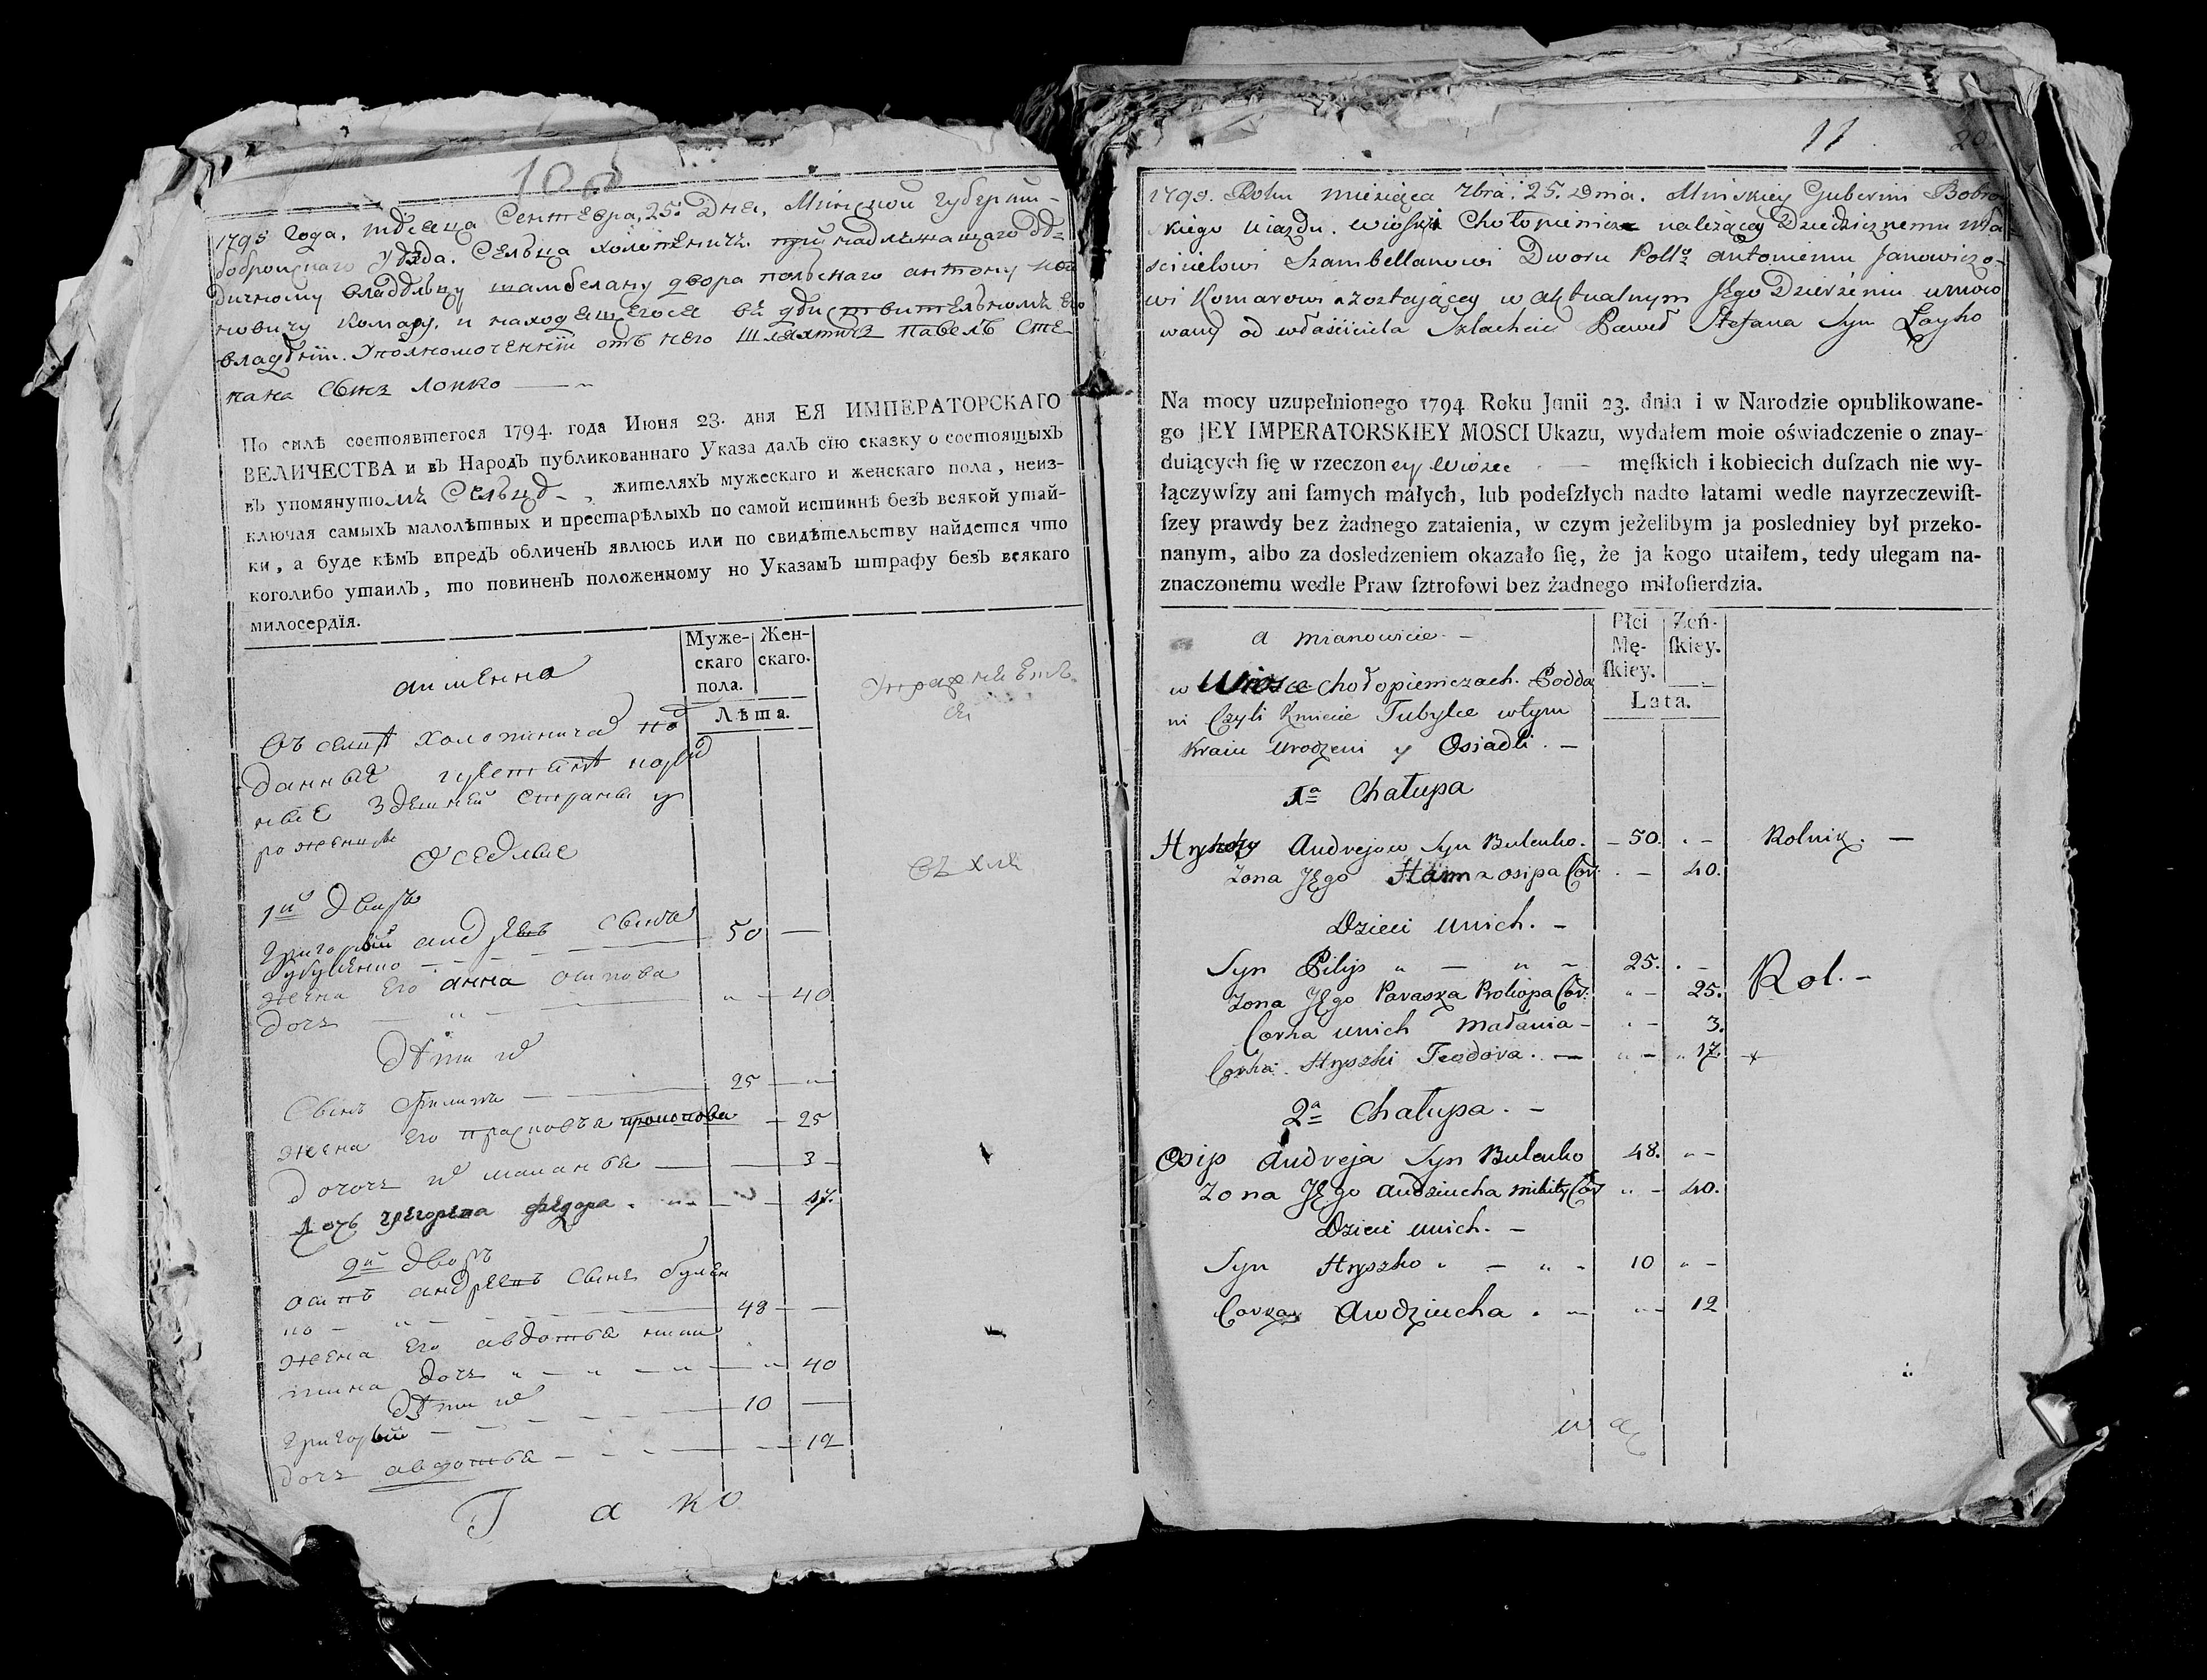 10
1795 года, мѣсяца Сентебра, 25. Дня, Минской губернии
бобруцкаго уѣзда. Сельца Холопѣничъ принадлежащаго Дѣ-
дичному владѣльцу шамбелану двора польскаго антону
новичу Комару, и находящегося въ дѣйствительномъ его
владѣнии. Уполномоченній отъ него Шляхтичъ Павелъ Сте-
пана Сынъ Лойко
По силѣ состоявшегося 1794. года Июня 23. дня ЕЯ ИМПЕРАТОРСКАГО
ВЕЛИЧЕСТВА и въ Народъ публикованнаго Указа далъ сїю сказку о состоящыхъ
въ упомянутомъ Сельцѣ, жителяхъ мужескаго и женскаго пола, неиз-
ключая самыхъ малолѣтныхъ и престарѣлыхъ по самой истиннѣ безъ всякой утай-
ки, а буде кѣмъ впредъ обличенъ явлюсь или по свидѣтельству найдется что
коголибо утаилъ, то повиненъ положенному но Указамъ штрафу безъ всякаго
милосердїя.
Муже-скаго пола. Жен-скаго.
Лѣта.
а именно
данные
здешней страны у
роженцы
Оседлые
1й Дворъ
Григорий андреевъ сынъ
50 —
жена его анна осипова
дочь 40
Дѣти их
Сынъ Филипъ 25
жена его прасковья прокопова 25
дочь их маланья 3
дочь григорева федора 17.
2й дворъ
осипъ андреевъ сынъ булен
ко 48 —
жена его авдотья ники
тина дочь 40
Дѣти их
григорий 10 —
дочь авдотья 12
Тако
11 20
1795. Roku miesiąca 7bra. 25. Dnia. Mińskiey Gubernii Bobro
skiego uiazdu. wioski Chołopienicze należącey Dziedzicznemu wła-
scicielowi Szambellanowi Dworu Pollo Antoniemu Janowiczo-
wi Komarowi a zostającey w aktualnym Jego Dzierżeniu umoco
wany od właściciela Szlachcic Paweł Stefana Syn Łayko
Na mocy uzupełnionego 1794 Roku Junii 23. dnia i w Narodzie opublikowane-
go JEY IMPERATORSKIEY MOSCI Ukazu, wydałem moie oświadczenie o znay-
duiących ſię w rzeczoney wiosce — męſkich i kobiecich duſzach nie wy-
łączywſzy ani ſamych małych, lub podeſzłych nadto latami wedle nayrzeczewiſt-
ſzey prawdy bez żadnego zataienia, w czym jeżelibym ja posledniey był przeko-
nanym, albo za dosledzeniem okazało ſię, że ja kogo utaiłem, tedy ulegam na-
znaczonemu wedle Praw ſztrofowi bez żadnego miłoſierdzia.
Płci Mę-ſkiey. Żeń-ſkiey.
Lata.
a mianowicie. —
w Wiosce Chołopieniczach. Podda
ni Czyli Kmiecie Tubylce wtym
Kraiu Urodzeni y Osiadli. —
1a Chałupa
Hryhory Andrejow Syn Bulenko. — 50. — Rolnik. —
Zona Jego Hanna osipa Cor. — 40.
Dzieci Unich. —
Syn Pilip 25. — Rol. —
Zona Jego Paraska Prokopa Cor: — 25.
Corka unich Małania — 3.
Corka Hryszki Teodora. — 17. +
2a Chałupa. —
Osip Andreja Syn Bulenko 48. —
Zona Jego Audziucha Mikity Cor — 40.
Dzieci unich. —
Syn Hryszko 10 —
Corka Awdziucha. — 12